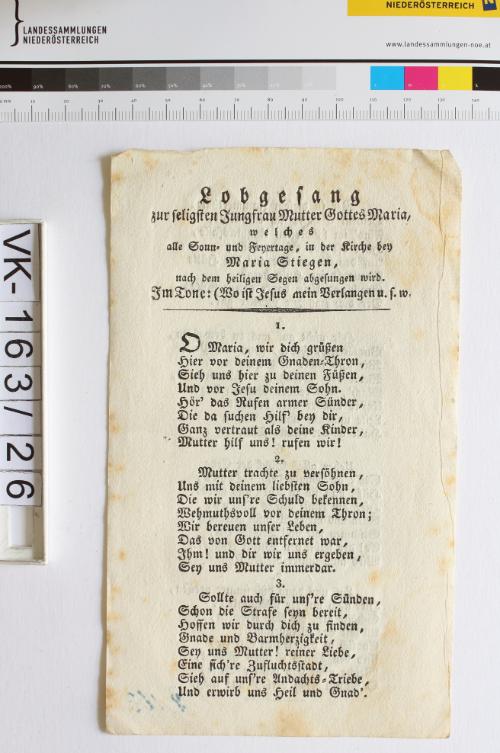 LANDESSAMMLUNGEN
NIEDERÖSTERREICH
NIEDERÖSTERREICH
www.landessammlungen-noe.at
VK-163/26
Lobgesang
zur seligsten Jungfrau Mutter Gottes Maria,
welches
alle Sonn- und Feyertage, in der Kirche bey
Maria Stiegen,
nach dem heiligen Segen abgesungen wird.
Im Tone: (Wo ist Jesus mein Verlangen u. s. w.
1.
O Maria, wir dich grüßen
Hier vor deinem Gnaden-Thron,
Sieh uns hier zu deinen Füßen,
Und vor Jesu deinem Sohn.
Hör' das Rufen armer Sünder,
Die da suchen Hilf' bey dir,
Ganz vertraut als deine Kinder,
Mutter hilf uns! rufen wir!
2.
Mutter trachte zu versöhnen,
Uns mit deinem liebsten Sohn,
Die wir uns're Schuld bekennen,
Wehmuthsvoll vor deinem Thron;
Wir bereuen unser Leben,
Das von Gott entfernet war,
Ihm! und dir wir uns ergeben,
Sey uns Mutter immerdar.
3.
Sollte auch für uns're Sünden,
Schon die Strafe seyn bereit,
Hoffen wir durch dich zu finden,
Gnade und Barmherzigkeit,
Sey uns Mutter! reiner Liebe,
Eine sich're Zufluchtsstadt,
Sieh auf uns're Andachts-Triebe,
Und erwirb uns Heil und Gnad'.